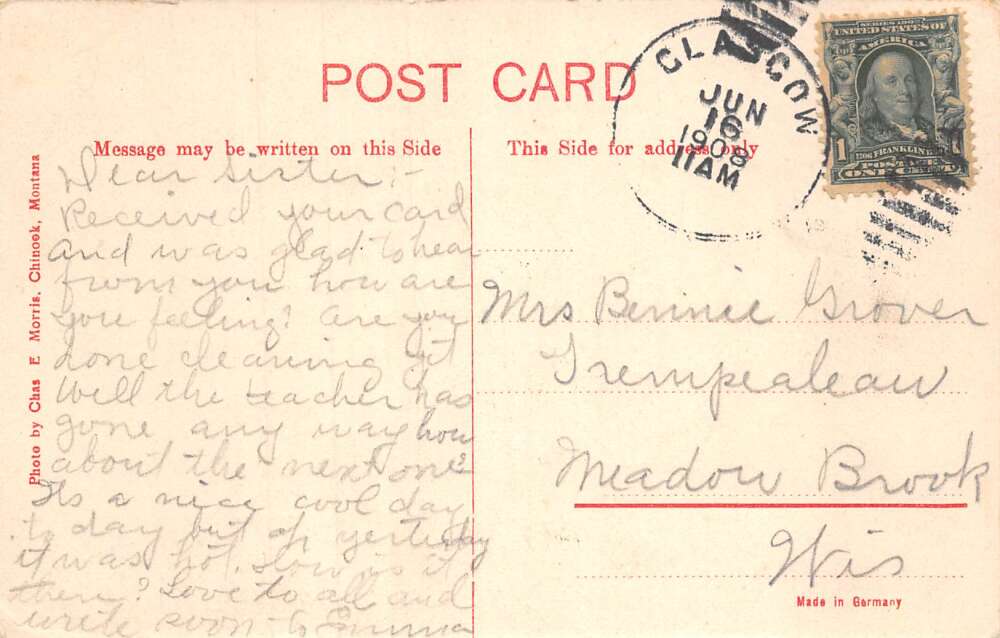 POST CARD
Message may be written on this Side
This Side for address only
Photo by Chas E Morris, Chinook, Montana
GLASGOW
JUN
16
1908
11 AM
SERIES 190
UNITED STATES OF
AMERICA
1 FRANKLIN
POSTAGE
ONE
Dear Sister:-
Received your card
and was glad to hear
from you how are
you feeling? are you
done cleaning yet
Well the teacher has
gone any way how
about the next one?
Its a nice cool day
to day but oh yesterday
it was hot. How is it
there? Love to all and
write soon to Emma
Mrs Bennie Grover
Trempealeau
Meadow Brook
Wis
Made in Germany